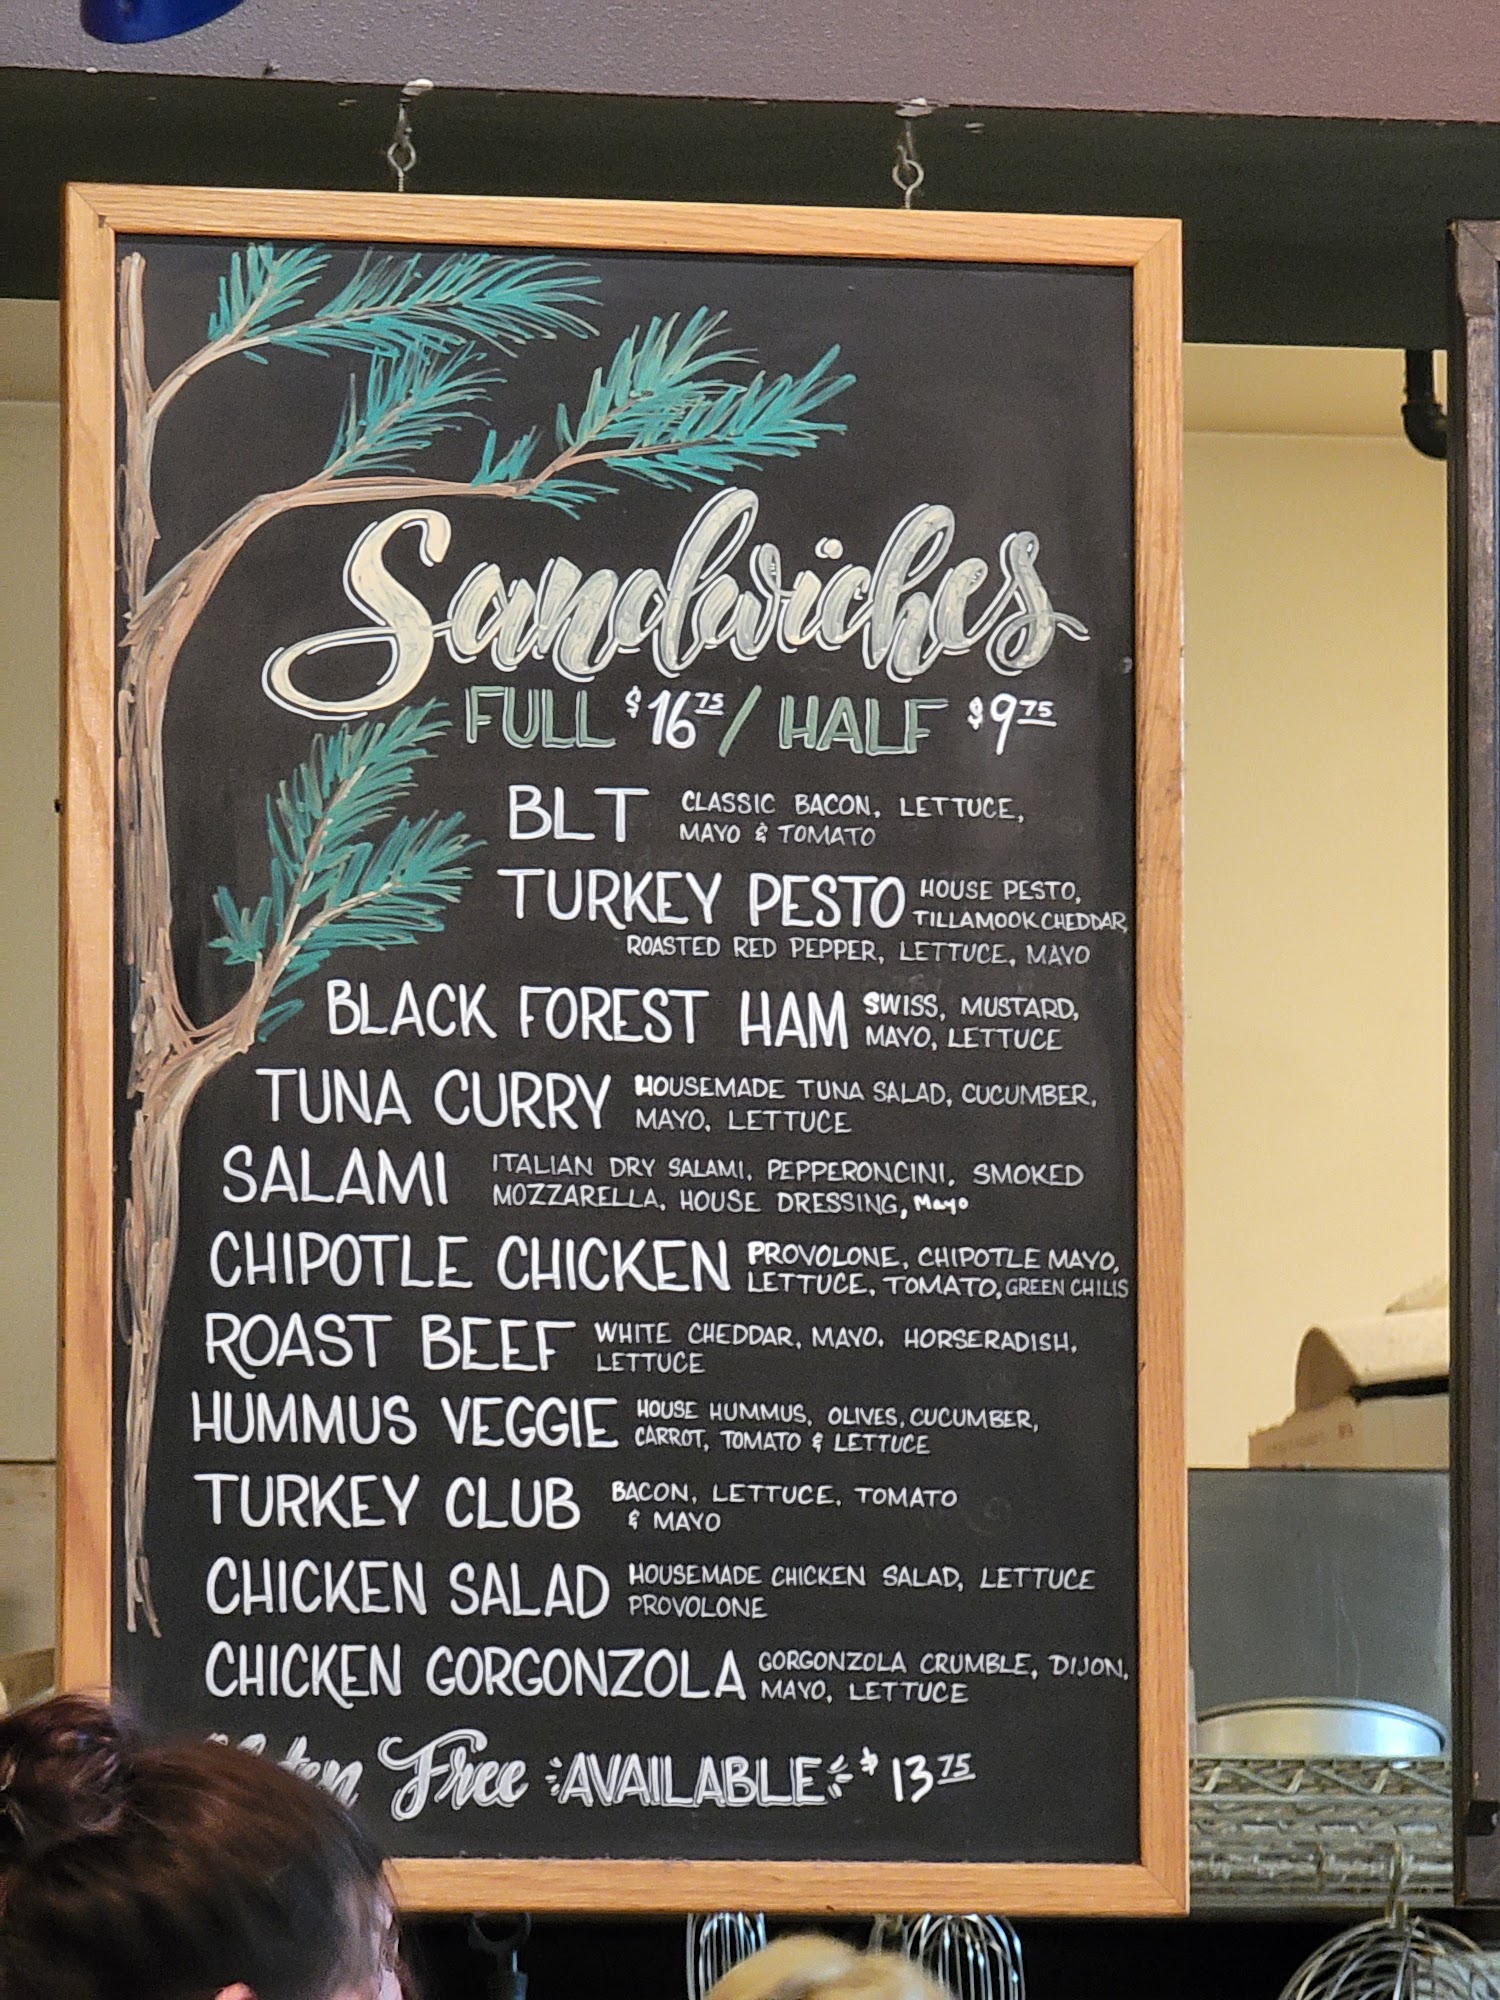 Sandwiches
FULL $16.75 / HALF $9.75
BLT CLASSIC BACON, LETTUCE,
MAYO & TOMATO
TURKEY PESTO HOUSE PESTO,
TILLAMOOK CHEDDAR,
ROASTED RED PEPPER, LETTUCE, MAYO
BLACK FOREST HAM SWISS, MUSTARD,
MAYO, LETTUCE
TUNA CURRY HOUSEMADE TUNA SALAD, CUCUMBER,
MAYO, LETTUCE
SALAMI ITALIAN DRY SALAMI, PEPPERONCINI, SMOKED
MOZZARELLA, HOUSE DRESSING, Mayo
CHIPOTLE CHICKEN PROVOLONE, CHIPOTLE MAYO,
LETTUCE, TOMATO, GREEN CHILIS
ROAST BEEF WHITE CHEDDAR, MAYO, HORSERADISH,
LETTUCE
HUMMUS VEGGIE HOUSE HUMMUS, OLIVES, CUCUMBER,
CARROT, TOMATO & LETTUCE
TURKEY CLUB BACON, LETTUCE, TOMATO
& MAYO
CHICKEN SALAD HOUSEMADE CHICKEN SALAD, LETTUCE
PROVOLONE
CHICKEN GORGONZOLA GORGONZOLA CRUMBLE, DIJON,
MAYO, LETTUCE
Free AVAILABLE $13.75